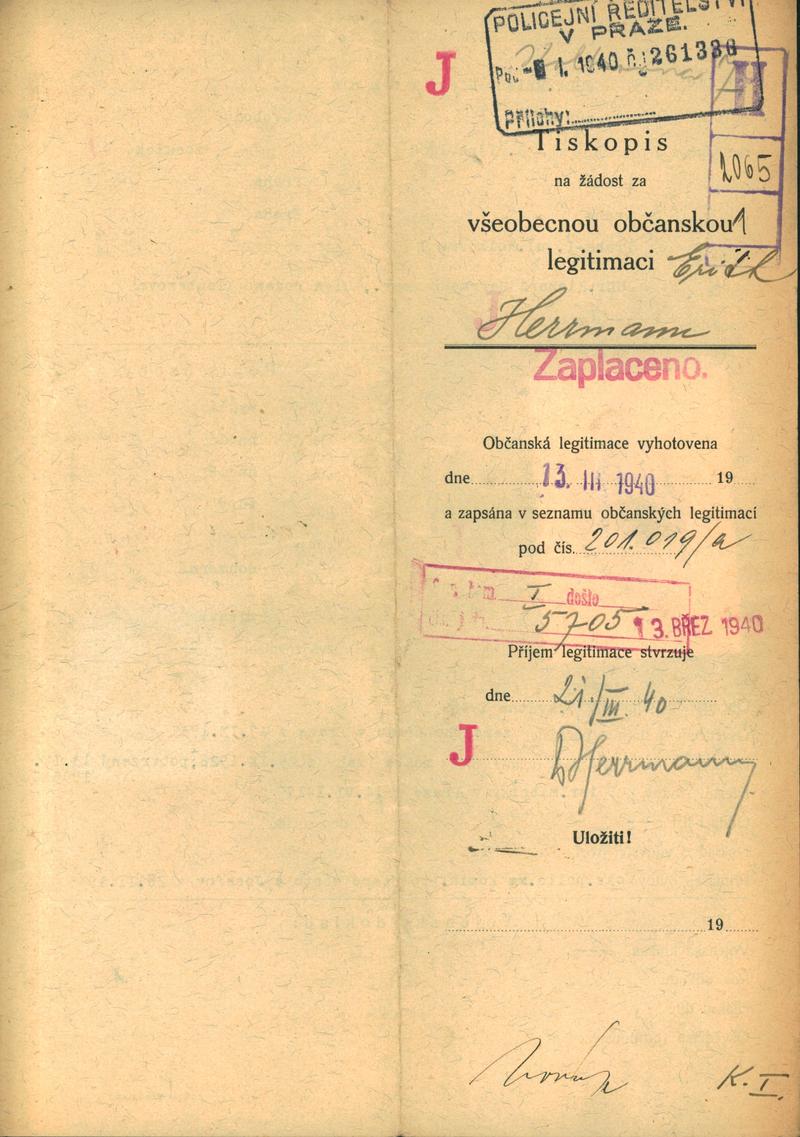 POLICEJNÍ ŘEDITELSTVÍ
V PRAZE.
1. 1940 261386
Přílohy:
J
H
2065
Tiskopis
na žádost za
všeobecnou občanskou
legitimaci Erich
J
Herrmann
Zaplaceno.
Občanská legitimace vyhotovena
dne 13. III 1940 19
a zapsána v seznamu občanských legitimací
pod čís. 201.019/a
I došlo
5705 13. BŘEZ 1940
Příjem legitimace stvrzuje
dne 21./III. 40
J
Herrmann
Uložiti!
19
K. I.